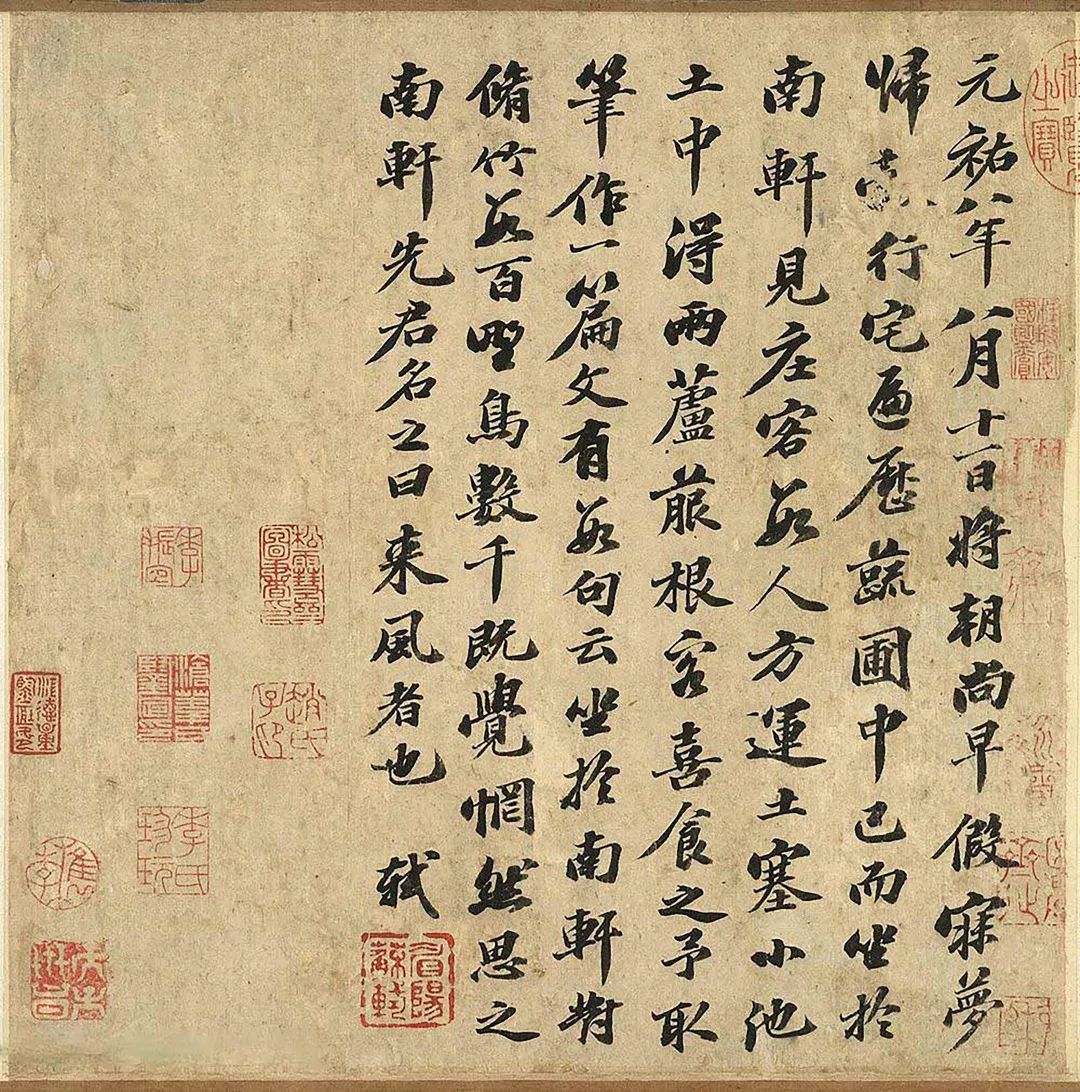 元祐八年八月十一日將朝尚早假寐夢
歸行宅遍歷蔬圃中已而坐於
南軒見庄客數人方運土塞小池
土中得兩蘆菔根客喜食之予取
筆作一篇文有數句云坐於南軒對
脩竹數百野鳥數千既覺惘然思之
南軒先君名之曰来風者也 軾
眉陽蘇軾
松雪齋圖書印
趙氏子昂